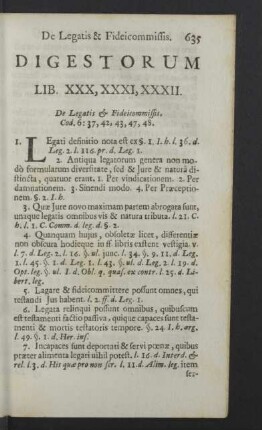 De Legatis & Fideicommissis. 635
DIGESTORUM
LIB. XXX, XXXI, XXXII.
De Legatis & Fideicommissis.
Cod. 6: 37, 42, 43, 47, 48.
1. LEgati definitio nota est ex §. 1. I. h. l. 36. d.
Leg. 2. l. 116. pr. d. Leg. 1.
2. Antiqua legatorum genera non mo-
dò formularum diversitate, sed & jure & naturâ di-
stincta, quatuor erant. 1. Per vindicationem. 2. Per
damnationem. 3. Sinendi modo. 4. Per Præceptio-
nem. §. 2. I. h.
3. Quæ Jure novo maximam partem abrogata sunt,
unaque legatis omnibus vis & natura tributa. l. 21. C.
h. l. 1. C. Comm. d. leg. d. §. 2.
4. Quanquam hujus, obsoletæ licet, differentiæ
non obscura hodieque in ff. libris exstent vestigia. v.
l. 7. d. Leg. 2. l. 16. §. ul. junc. l. 34. §. 9. 11. d. Leg.
1. l. 45. §. 1. d. Leg. 1. l. 43. §. ul. d. Leg. 2. l. 19. d.
Opt. leg. §. ul. I. d. Obl. q. quas. ex contr. l. 25. d. Li-
bert. leg.
5. Lagare & fidricommittere possunt omnes, qui
testandi Jus habent. l. 2. ff. d. Leg. 1.
6. Legata relinqui possunt omnibus, quibuscum
est testamenti factio passiva, quique capaces sunt testa-
menti & mortis testatoris tempore. §. 24. I. h. arg.
l. 49. §. 1. d. Her. inst.
7. Incapaces sunt deportati & servi pœnæ, quibus
præter alimenta legari nihil potest. l. 16. d. Interd. &
rel. l. 3. d. His quæ pro non scr. l. 11. d. Alim. leg. item